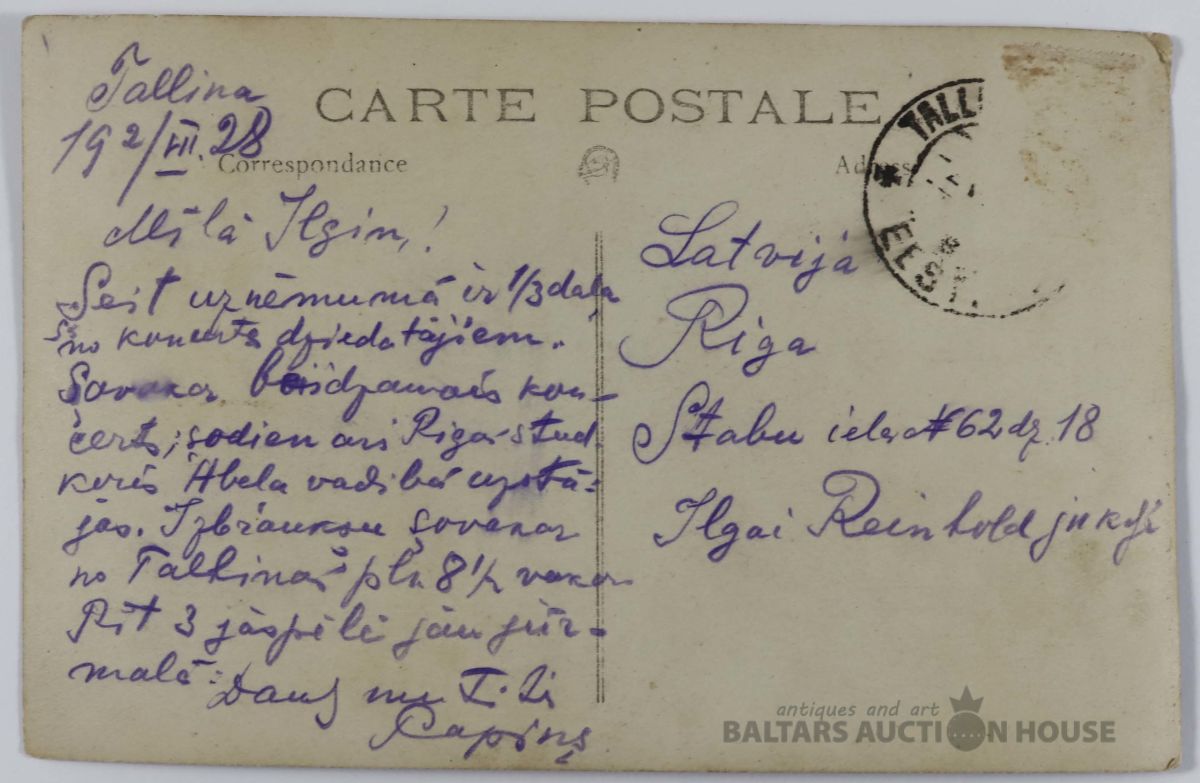 Tallina
19 2/VII. 28
CARTE POSTALE
Correspondance
Adress
TALLI
EEST.
Mīlā Ilgiņ,!
Šeit uzņēmumā ir 1/3 daļa
no koncerta dziedatājiem.
Šovakar beidzamais kon-
certs, šodien arī Rīgas stud
koris Ābela vadībā uzstā-
jas. Izbraukšu šovakar
no Tallinas plk 8 1/2 vakar
Rīt 3 jāspēlē jau jūr-
malā.
Papiņš
Latvijā
Riga
Stabu iela № 62 dz. 18
Ilgai Reinhold jukdz
antiques and art
BALTARS AUCTION HOUSE